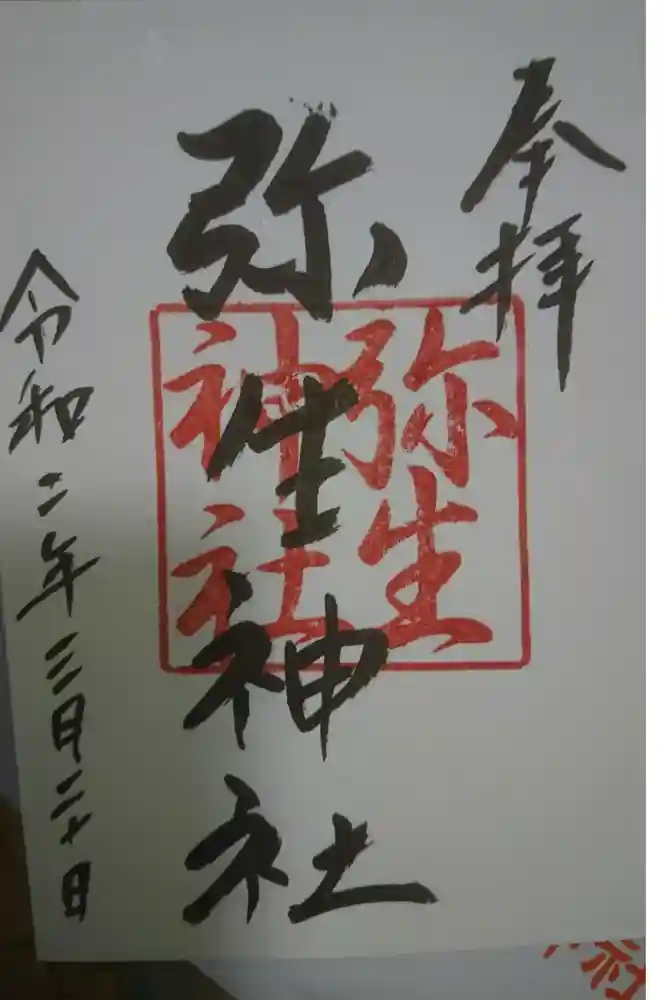 奉拝
弥生神社
弥生
神社
令和二年三月二十日